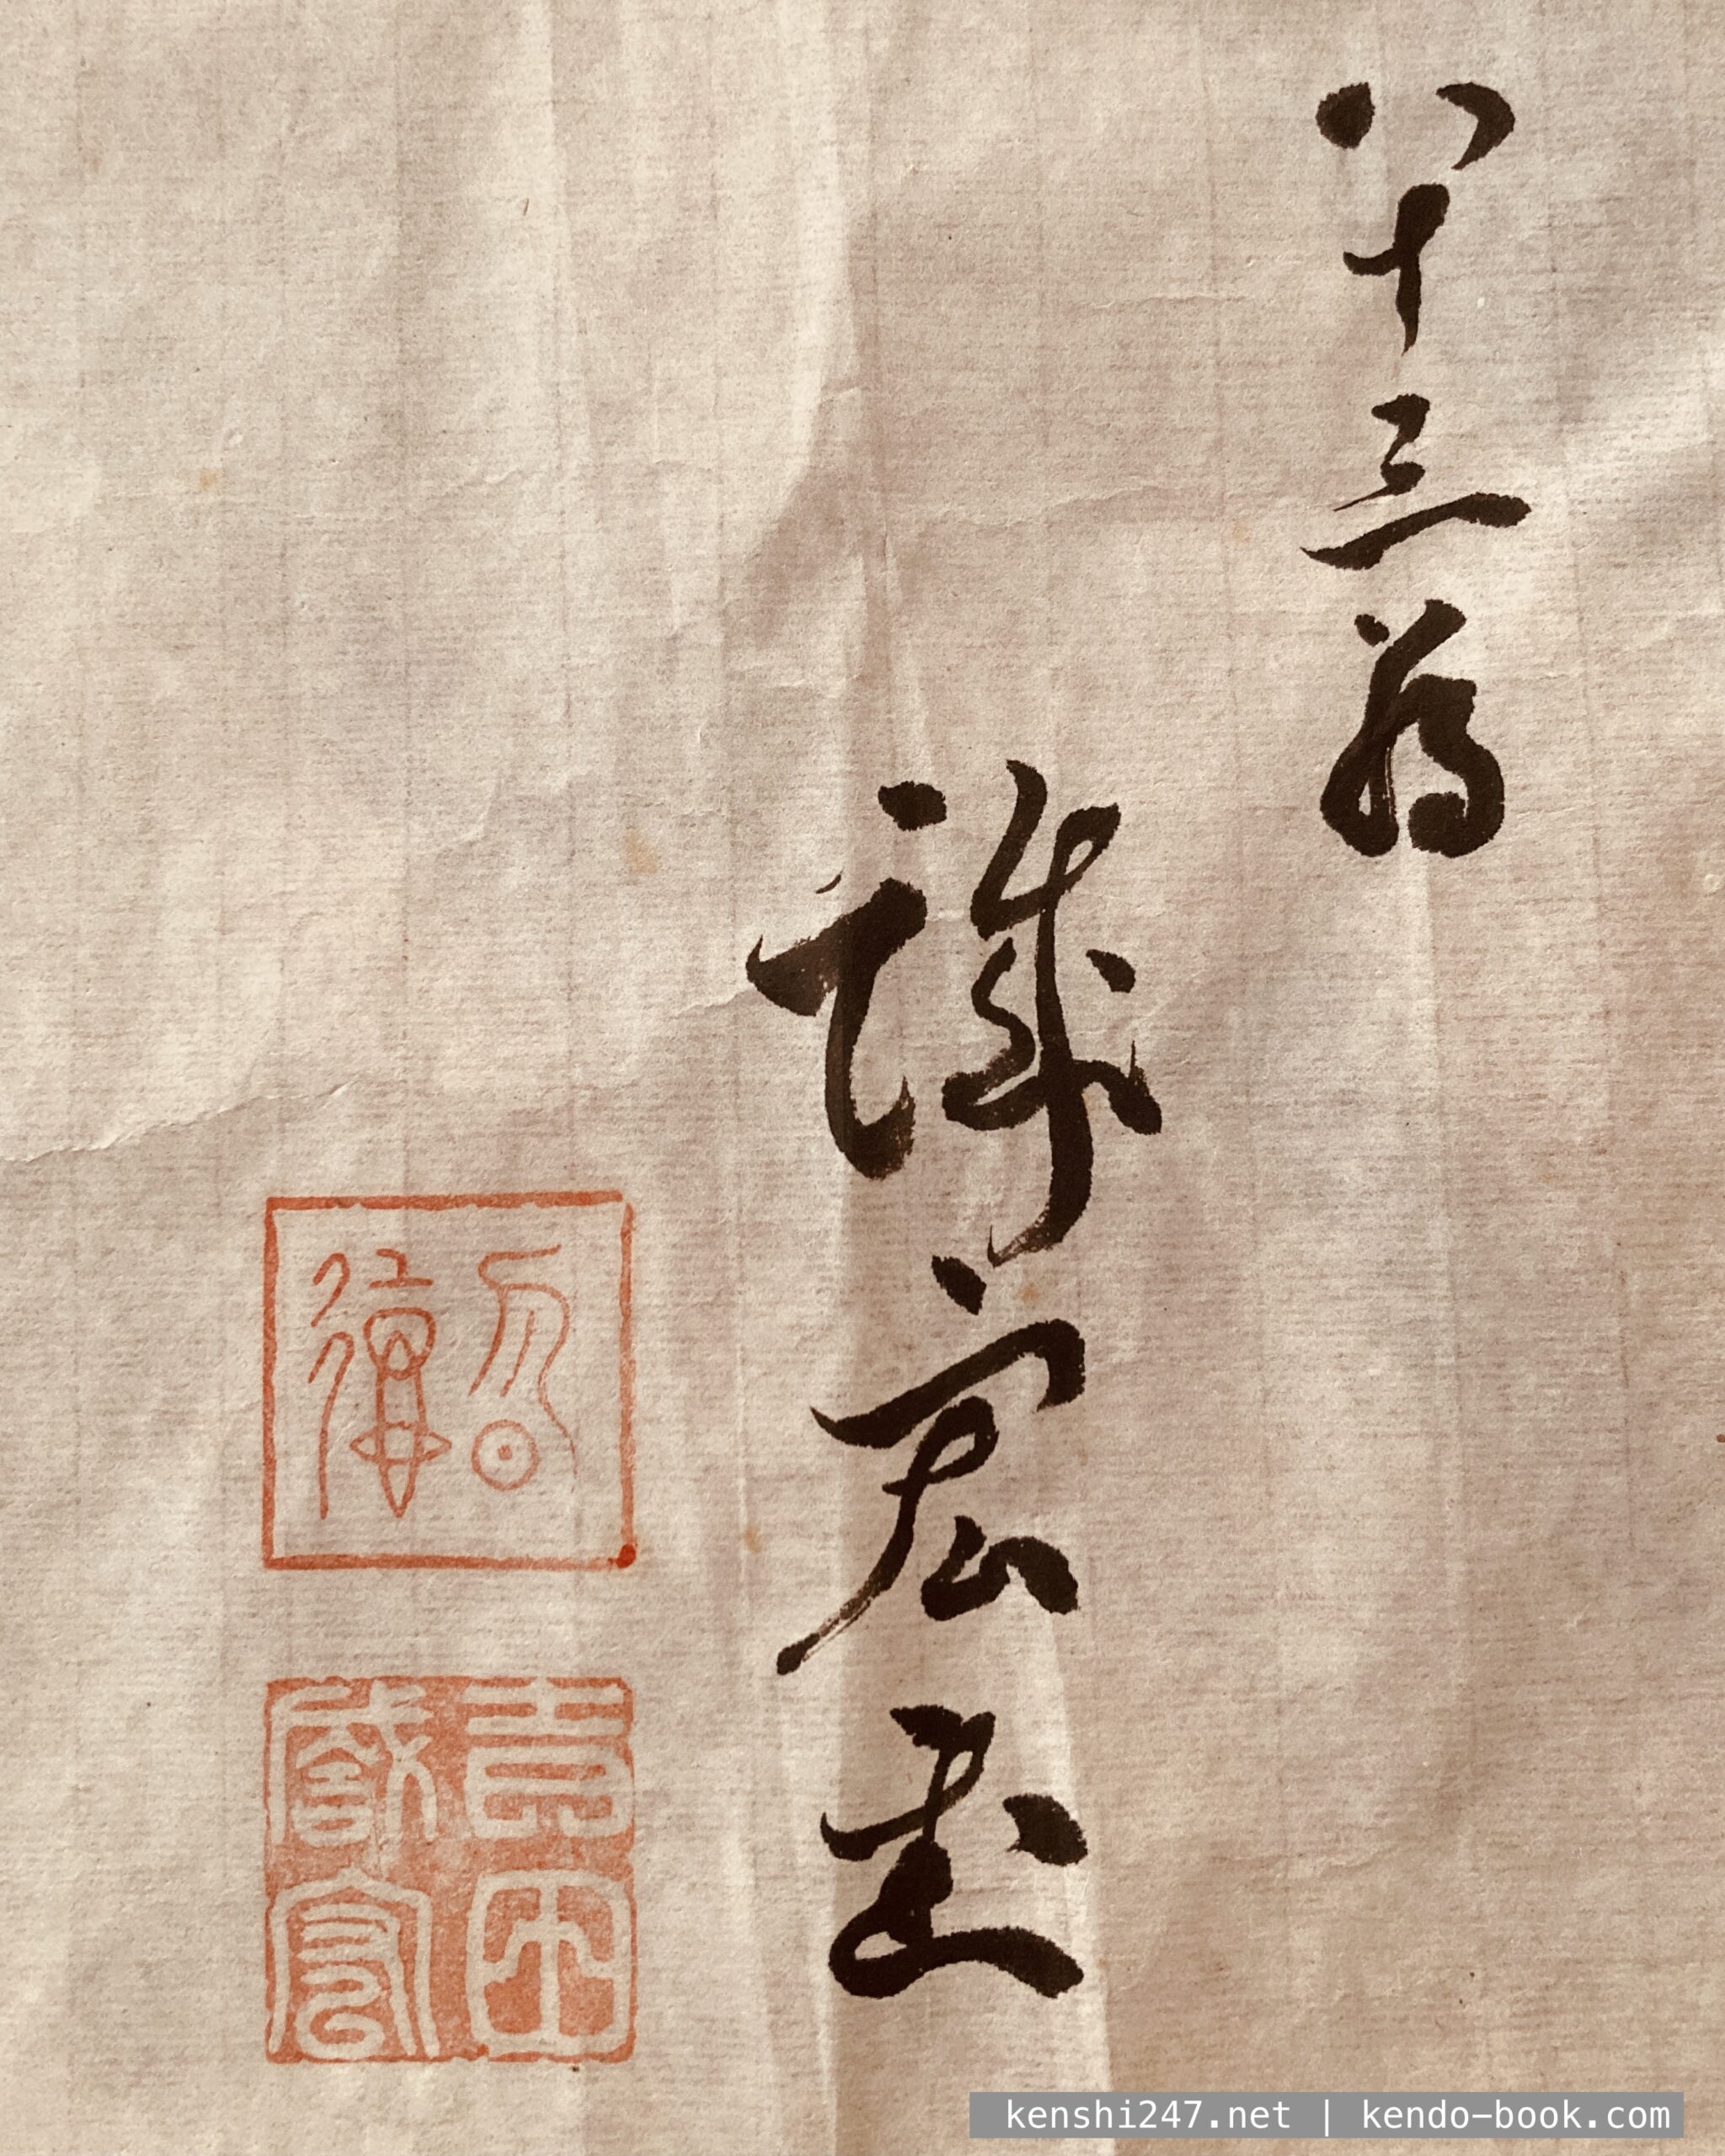 八十三翁
誠宏書
吉田
誠宏
kenshi247.net | kendo-book.com